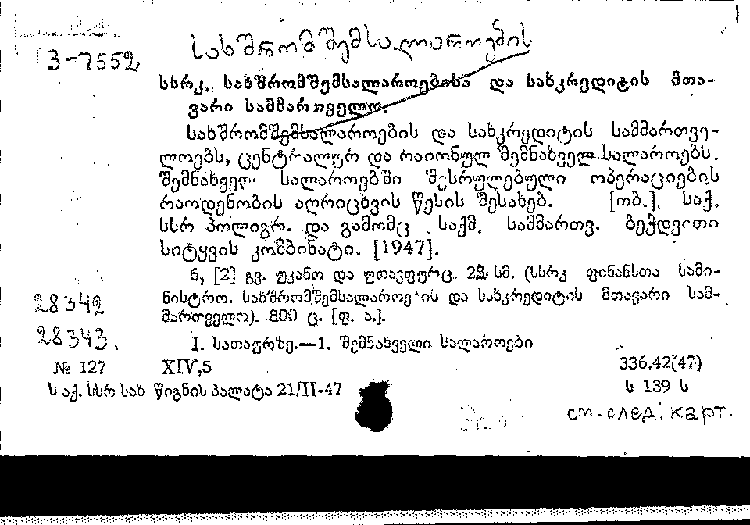 3-7552 სახშრომშემსალაროების
სსრკ. სახშრომშემსალაროებისა და სახკრედიტის მთა-
ვარი სამმართველო.
სახშრომშემსალაროების და სახკრედიტის სამმართვე-
ლოებს, ცენტრალურ და რაიონულ შემნახველ სალაროებს.
შემნახველ სალაროებში შესრულებული ოპერაციების
რაოდენობის აღრიცხვის წესის შესახებ. [თბ.], საქ.
სსრ პოლიგრ. და გამომც. საქმ. სამმართვ. ბეჭდვითი
სიტყვის კომბინატი. [1947].
6, [2] გვ. უკანო და უთავფურც. 22 სმ. (სსრკ ფინანსთა სამი-
28342 ნისტრო. სახშრომშემსალაროების და სახკრედიტის მთავარი სამ-
მართველო). 800 ც. [უ. ა.].
28343. I. სათაურზე.—1. შემნახველი სალაროები
№ 127 XIV,5 336.42(47)
საქ. სსრ სახ წიგნის პალატა 21/II-47 ს 189 ს
см. след. карт.